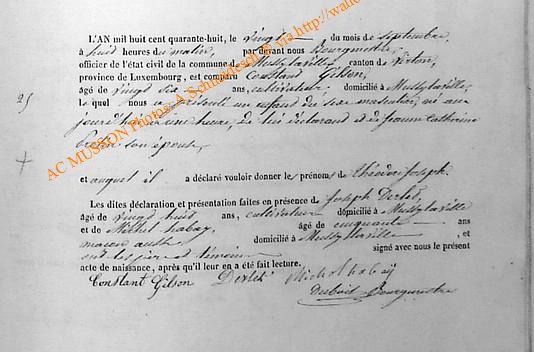 L'AN mil huit cent quarante-huit, le vingt du mois de septembre
à huit heures du matin, par devant nous Bourgmestre,
officier de l'état civil de la commune de Mussylaville, canton de Virton,
province de Luxembourg, est comparu Constand Gilson,
âgé de vingd six ans, cultivateur, domicilié à Mussylaville,
Le quel nous a présenté un enfand de sexe masculin, né au
jourd'hui à une heure, de lui déclarand et de Jeanne Catherine
25
son épouse,
et auquel il a déclaré vouloir donner le prénoms de Théodor Joseph.
Les dites déclaration et présentation faites en présence de Joseph Derlet,
âgé de vingd huid ans, cultivateur domicilié à Mussylaville
et de Michel habay, âgé de cinquante ans
domicilié à Mussylaville et
signé avec nous le présent
acte de naissance, après qu'il leur en a été fait lecture.
Constant Gilson Derlet Michel habaÿ
Bourgmestre
AC MUSSON Photos A Schnadesch © via http://